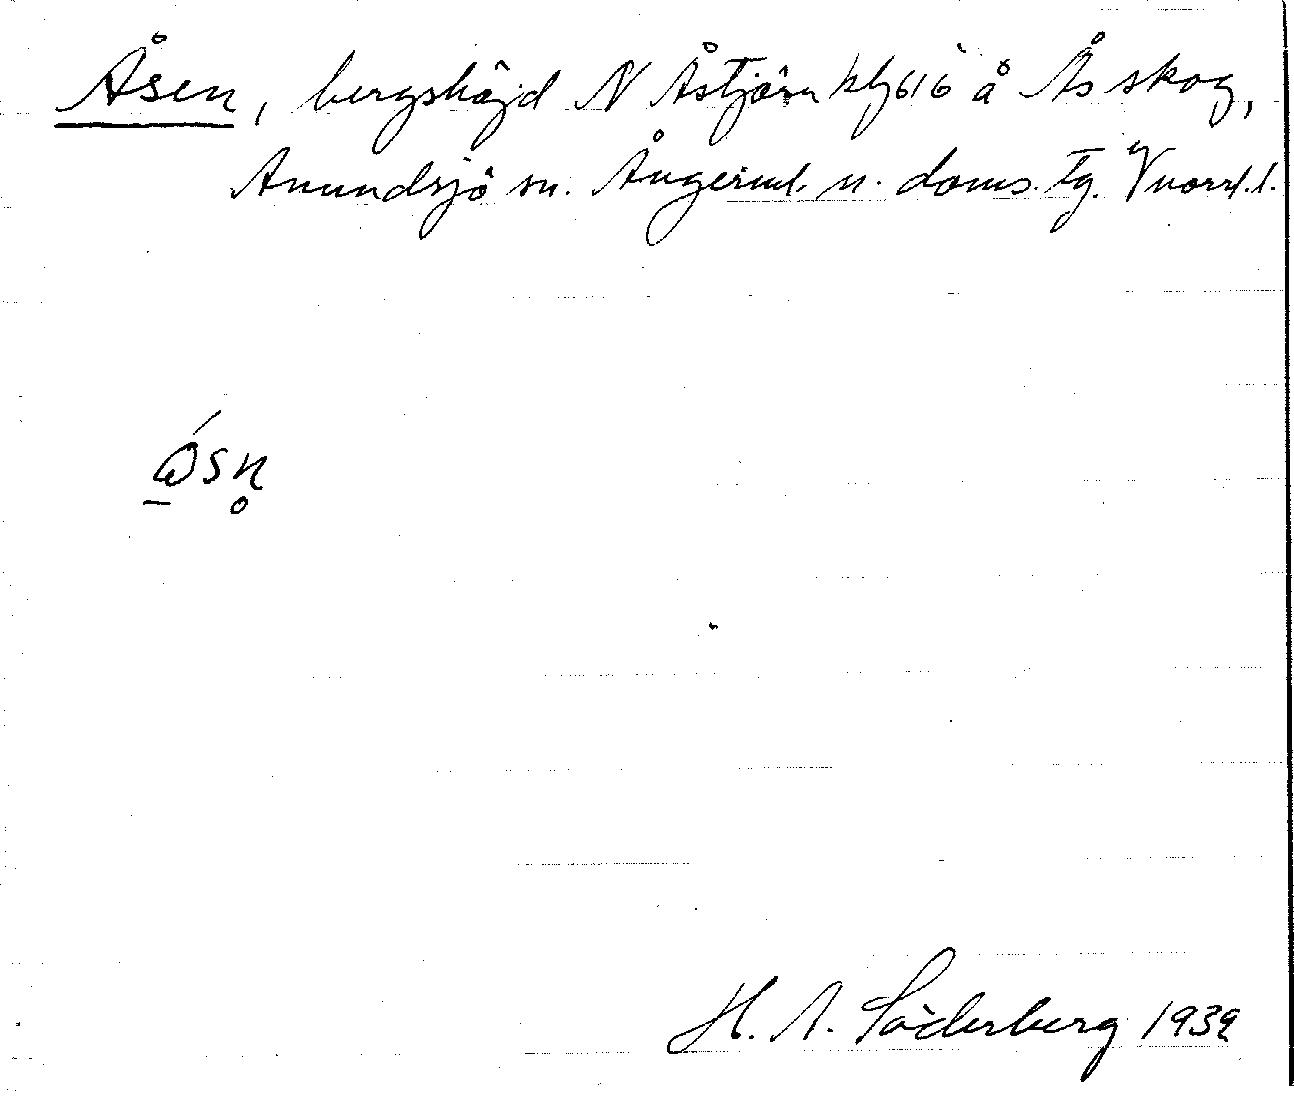 Åsen, bergshöjd N Åstjärn kbl 616 å Ås skog,
Anundsjö sn. Ångerml. n. doms. tg. Vnorrl. l.
H. A. Söderberg 1939